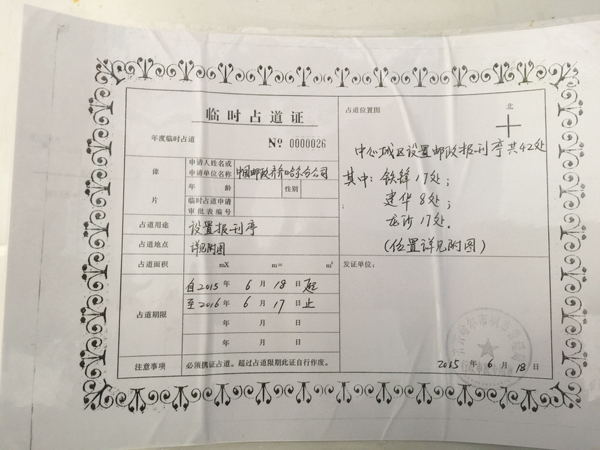 临时占道证
年度临时占道 № 0000026
像片
申请人姓名或申请单位名称 中国邮政齐齐哈尔分公司
年龄 性别
临时占道申请审批表编号
占道用途 设置报刊亭
占道地点 详见附图
占道面积 mX m= m²
占道期限
自2015年 6月 18日起
至2016年 6月 17日止
年 月 日
年 月 日
注意事项 必须携证占道。超过占道期限此证自行作废。
占道位置图
北
中心城区设置邮政报刊亭共42处
其中：铁锋17处；
建华8处；
龙沙17处.
(位置详见附图)
发证单位：
2015年 6月 18日